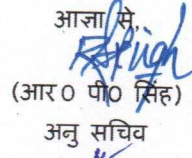 आज्ञा से,
(आर0 पी0 सिंह)
अनु सचिव